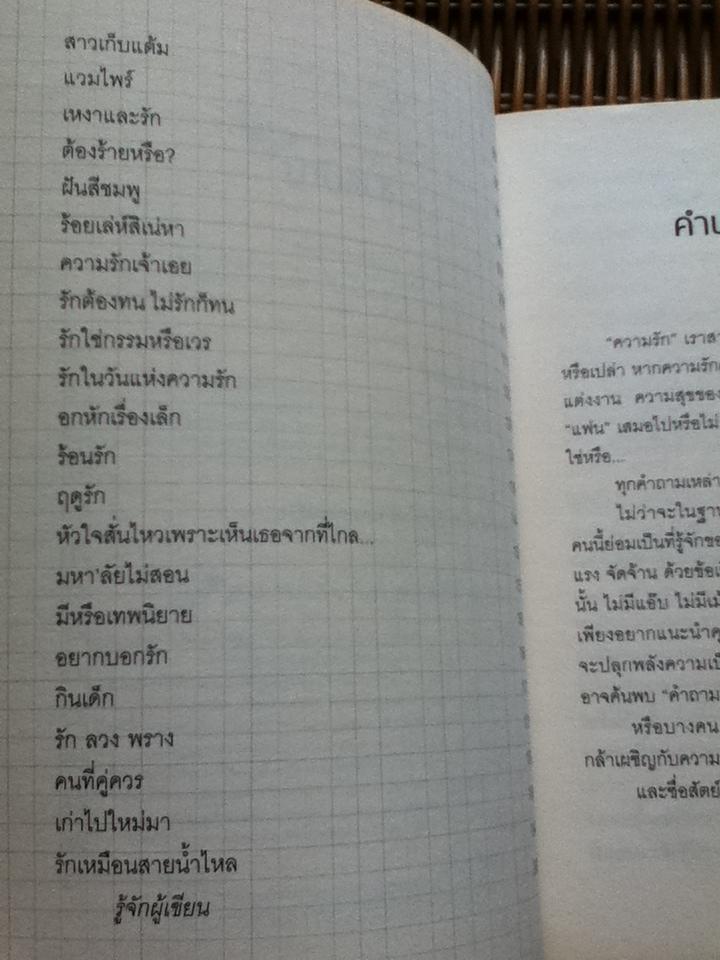 สาวเก็บแต้ม
แวมไพร์
เหงาและรัก
ต้องร้ายหรือ?
ฝันสีชมพู
ร้อยเล่ห์สิเน่หา
ความรักเจ้าเอย
รักต้องทน ไม่รักก็ทน
รักใช่กรรมหรือเวร
รักในวันแห่งความรัก
อกหักเรื่องเล็ก
ร้อนรัก
ฤดูรัก
หัวใจสั่นไหวเพราะเห็นเธอจากที่ไกล...
มหา'ลัยไม่สอน
มีหรือเทพนิยาย
อยากบอกรัก
กินเด็ก
รัก ลวง พราง
คนที่คู่ควร
เก่าไปใหม่มา
รักเหมือนสายน้ำไหล
รู้จักผู้เขียน
"ความรัก"
หรือเปล่า หากความรัก
แต่งงาน ความสุขของ
"แฟน" เสมอไปหรือไม่
ใช่หรือ...
ทุกคำถามเหล่า
ไม่ว่าจะในฐาน
คนนี้ย่อมเป็นที่รู้จัก
แรง จัดจ้าน ด้วยข้อ
นั้น ไม่มีแอ๊บ
เพียงอยากแนะนำ
จะปลุกพลังความ
อาจค้นพบ "คำถาม
หรือบางคน
กล้าเผชิญกับความ
และซื่อสัตย์